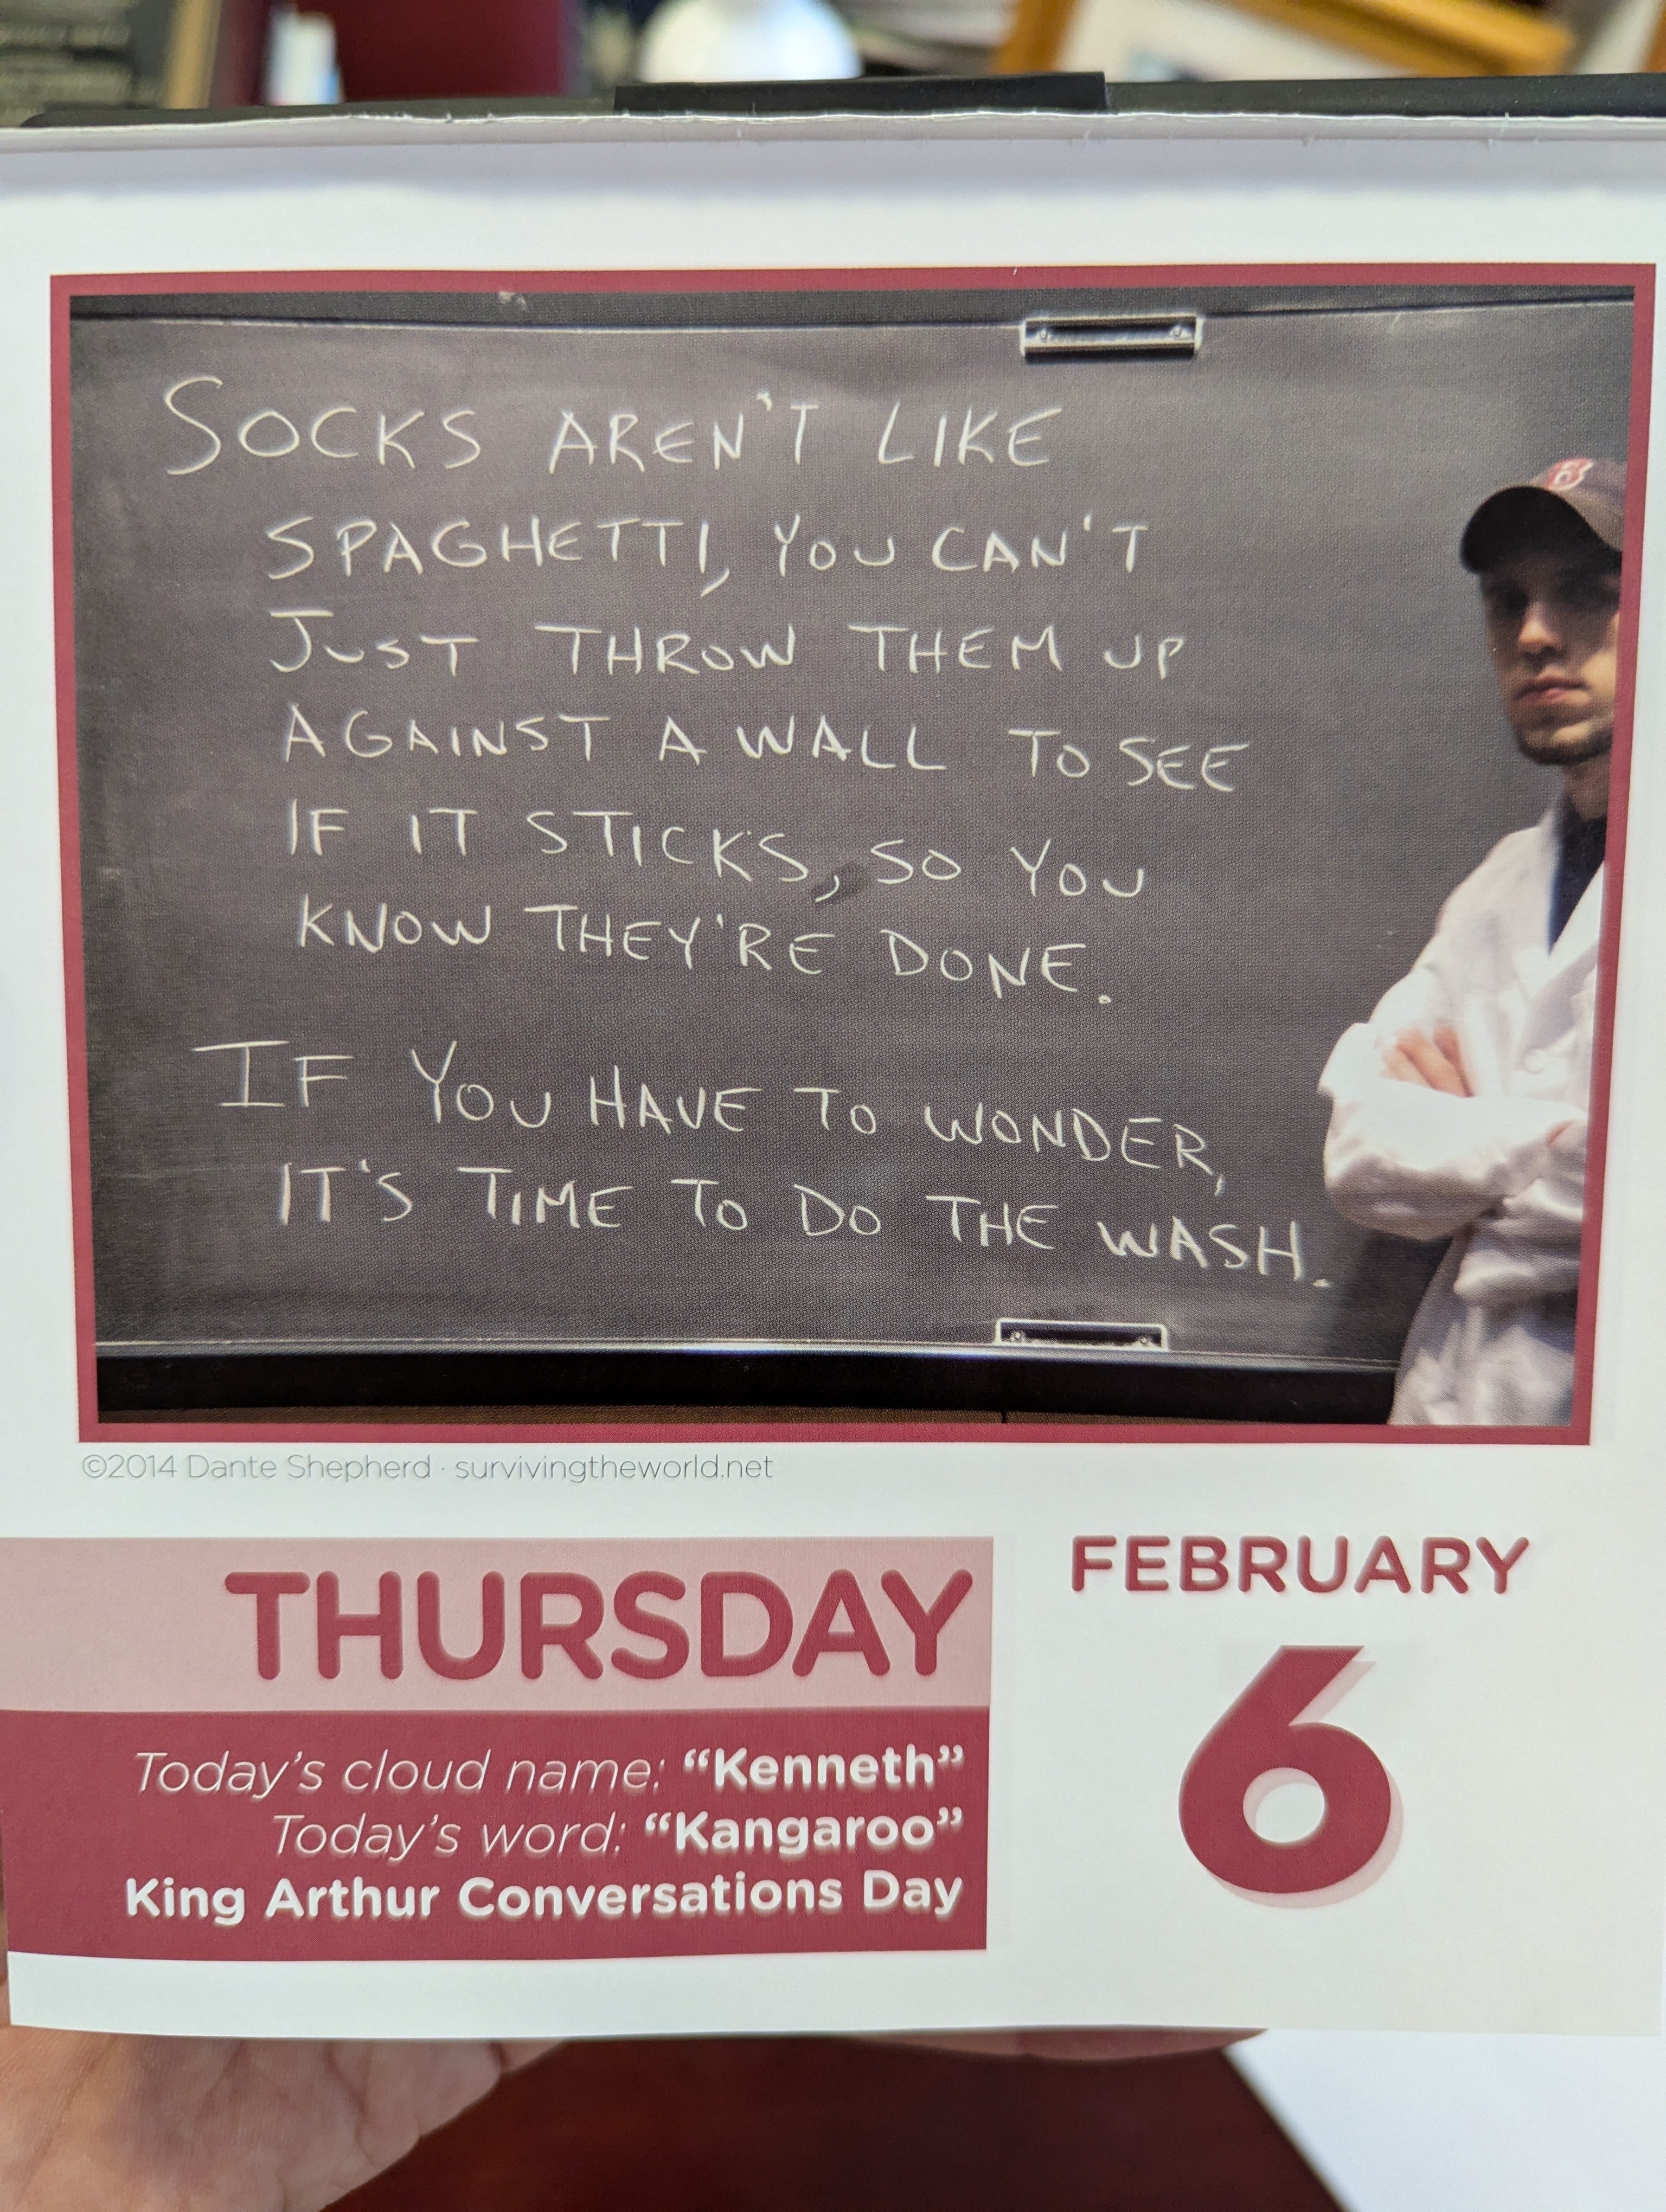 SOCKS AREN'T LIKE
SPAGHETTI, YOU CAN'T
JUST THROW THEM UP
AGAINST A WALL TO SEE
IF IT STICKS, SO YOU
KNOW THEY'RE DONE.
IF YOU HAVE TO WONDER,
IT'S TIME TO DO THE WASH.
B
©2014 Dante Shepherd · survivingtheworld.net
THURSDAY
Today's cloud name: “Kenneth”
Today's word: “Kangaroo”
King Arthur Conversations Day
FEBRUARY
6